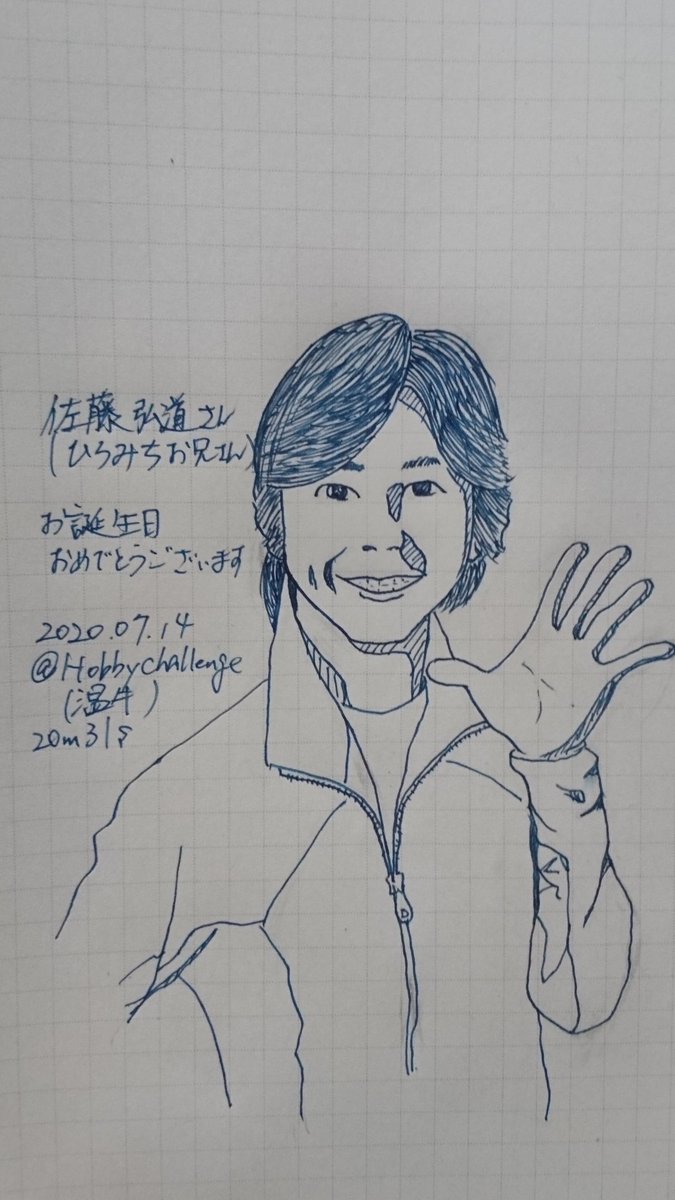 佐藤 弘道さん
(ひろみちお兄さん)
お誕生日
おめでとうございます
2020.07.14
@Hobbychallenge
(温井)
20m31s